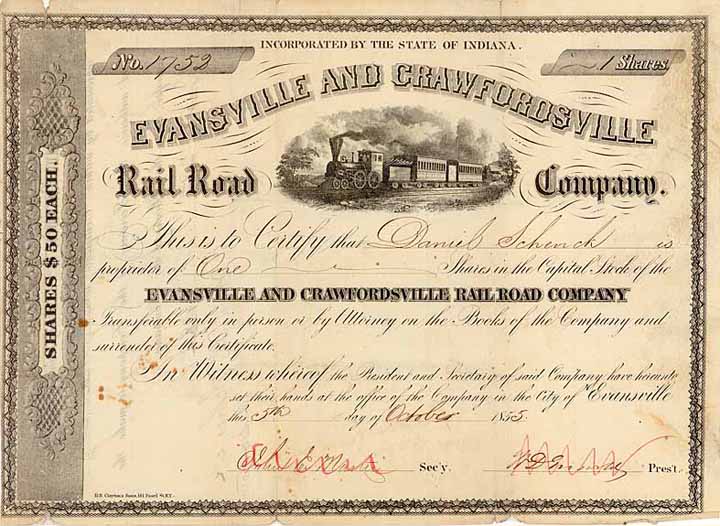 INCORPORATED BY THE STATE OF INDIANA.
No. 1752
1 Shares
EVANSVILLE AND CRAWFORDSVILLE
Rail Road Company.
This is to Certify that Daniel Schenck is
proprietor of One Shares in the Capital Stock of the
EVANSVILLE AND CRAWFORDSVILLE RAIL ROAD COMPANY
Transferable only in person or by Attorney on the Books of the Company and
surrender of this Certificate.
In Witness whereof the President and Secretary of said Company have hereunto
set their hands at the office of the Company in the City of Evansville
this 5th day of October 1855
Sec'y. Pres't.
SHARES $50 EACH.